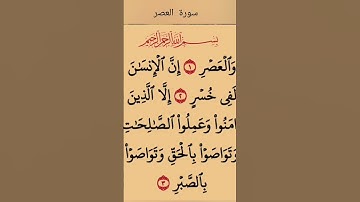 سورة العصر
بِسْمِ اللَّهِ الرَّحْمَٰنِ الرَّحِيمِ
وَالْعَصْرِ ١ إِنَّ الْإِنسَٰنَ
لَفِى خُسْرٍ ٢ إِلَّا الَّذِينَ
ءَامَنُوا۟ وَعَمِلُوا۟ الصَّٰلِحَٰتِ
وَتَوَاصَوْا۟ بِالْحَقِّ وَتَوَاصَوْا۟
بِالصَّبْرِ ٣